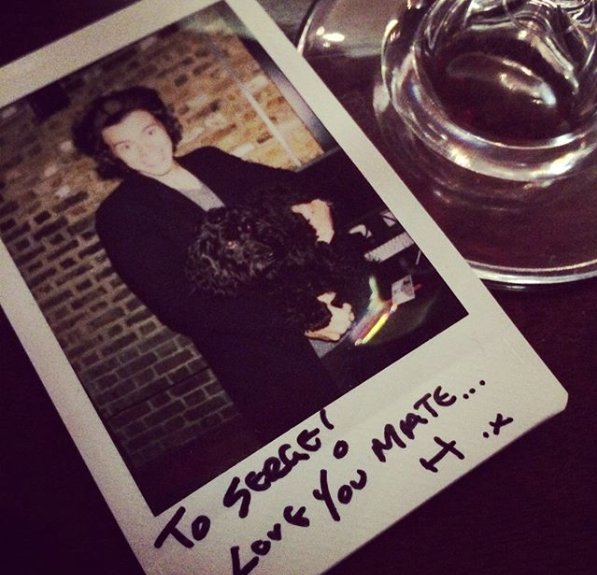 TO SERGEI
LOVE YOU MATE...
H .x